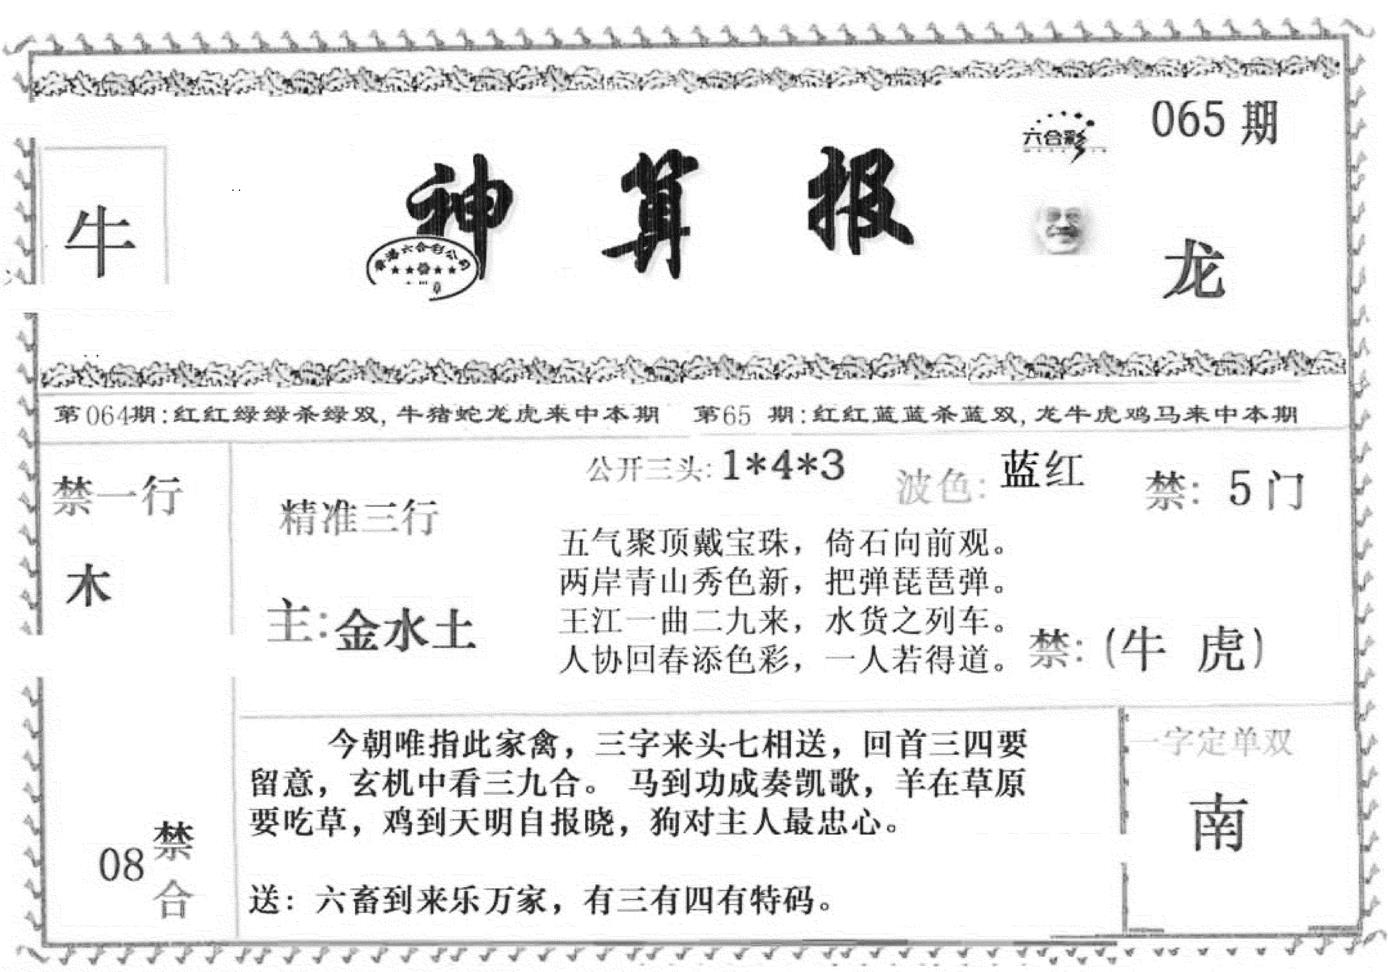 065 期
六合彩
牛
神算报
香港六合彩公司
龙
第064期:红红绿绿杀绿双,牛猪蛇龙虎来中本期 第65 期:红红蓝蓝杀蓝双,龙牛虎鸡马来中本期
禁一行
木
精准三行
主:金水土
公开三头:1*4*3 波色:蓝红 禁: 5门
五气聚顶戴宝珠，倚石向前观。
两岸青山秀色新，把弹琵琶弹。
王江一曲二九来，水货之列车。
人协回春添色彩，一人若得道。
禁:(牛 虎)
今朝唯指此家禽，三字来头七相送，回首三四要
留意，玄机中看三九合。 马到功成奏凯歌，羊在草原
要吃草，鸡到天明自报晓，狗对主人最忠心。
送：六畜到来乐万家，有三有四有特码。
08
禁合
一字定单双
南